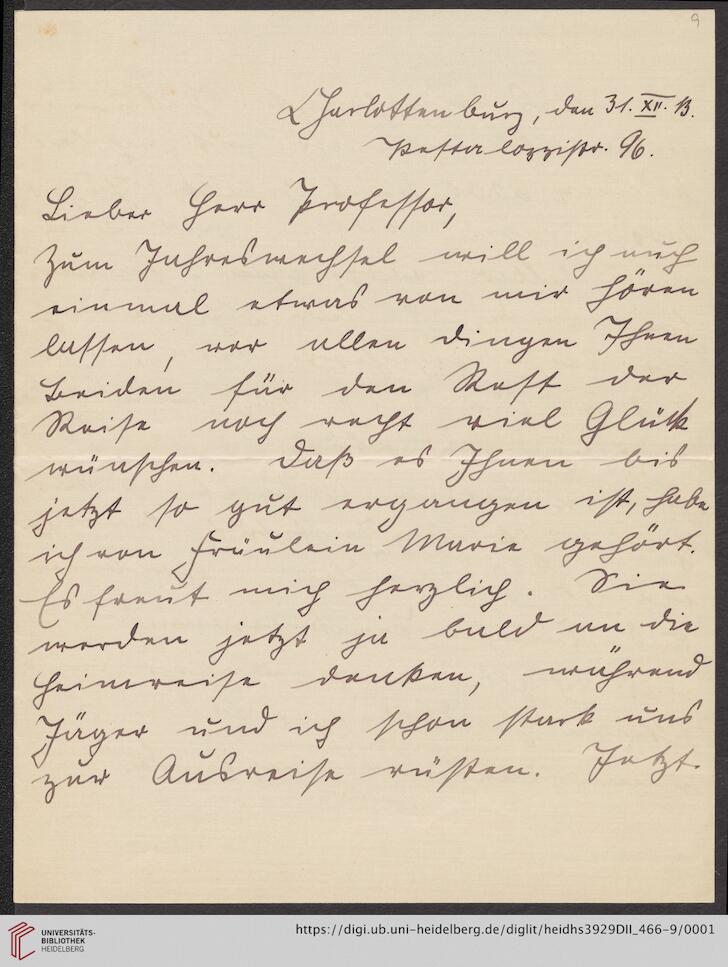 9
Charlottenburg, den 31. XII. 13.
Pestalozzistr. 96.
Lieber Herr Professor,
Zum Jahreswechsel will ich auch
einmal etwas von mir hören
lassen, vor allen Dingen Ihnen
Beiden für den Rest der
Reise noch recht viel Glück
wünschen. Daß es Ihnen bis
jetzt so gut ergangen ist, habe
ich von Fräulein Marie gehört.
Es freut mich herzlich. Sie
werden jetzt ja bald an die
Heimreise denken, während
Jäger und ich schon stark uns
zur Ausreise rüsten. Jetzt.
UNIVERSITÄTS-
BIBLIOTHEK
HEIDELBERG
https://digi.ub.uni-heidelberg.de/diglit/heidhs3929DII_466-9/0001